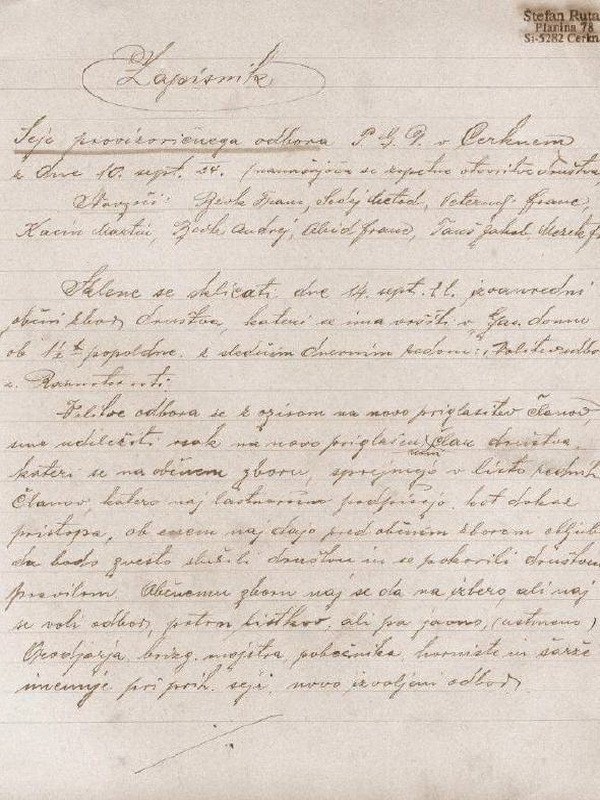 Štefan Ruta
Planina 78
Si-5282 Cerkn
Zapisnik
Seje provizoričnega odbora P. G. D. v Cerknem
z dne 10. sept. 24. se zopetne otvoritve društva
Navzoči: Bevk Franc, Sedej Metod, Franc,
Kacin Martin, Bevk Andrej, Abid Franc, Jakob
Sklene se sklicati dne 14. sept. t. l. izvanredni
občni zbor društva, kateri se ima vršiti v Gas. domu
ob popoldne. s sledečim dnevnim redom: Volitev odbo
2. Raznoterosti.
Volitve odbora se z ozirom na novo priglasitev članov,
sme udeležiti vsak na novo priglašeni član društva
kateri se na občnem zboru, sprejmejo v listo rednih
članov, katero naj lastnoročno podpišejo, kot dokaz
pristopa, ob enem naj dajo pred občnim zborom obljub
da bodo zvesto služili društvu in se pokorili društven
pravilom. Občnemu zboru naj se da na izbero, ali naj
se voli odbor, potom listkov, ali pa javno, (ustmeno)
Orodjarja, brizg. mojstra, pobočnika, hornista in šarže
imenuje pri prih. seji, novo izvoljeni odbor.